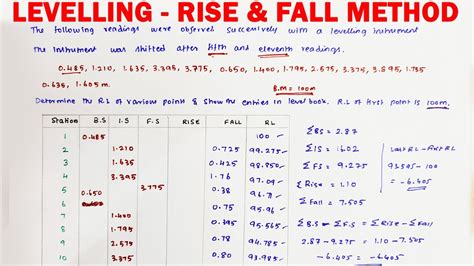 LEVELLING - RISE & FALL METHOD
The following readings were observed successively with a levelling instrument
The instrument was shifted after fifth and eleventh readings.
0.485, 1.210, 1.635, 3.395, 3.775, 0.650, 1.400, 1.795, 2.575, 3.375, 3.895, 1.735
0.635, 1.605 m.
B.M = 100m
Determine the R.L of various points & show the entries in level book. R.L of first point is 100m.
Station B.S I.S F.S RISE FALL RL
1 0.485 100
2 1.210 0.725 99.275
3 1.635 0.425 98.850
4 3.395 1.76 97.09
5 0.650 3.775
6
7 1.400
8 1.795 0.395
9 2.575 0.78 94.785
10 3.375 0.80 93.985
ΣBS = 2.87
ΣIS = 16.02
ΣFS = 9.275
ΣRise = 1.10
ΣFall = 7.505
Last RL - First RL
93.595 - 100
= -6.405
ΣB.S - ΣF.S = ΣRise - ΣFall
2.87 - 9.275 = 1.10 - 7.505
-6.405 = -6.405